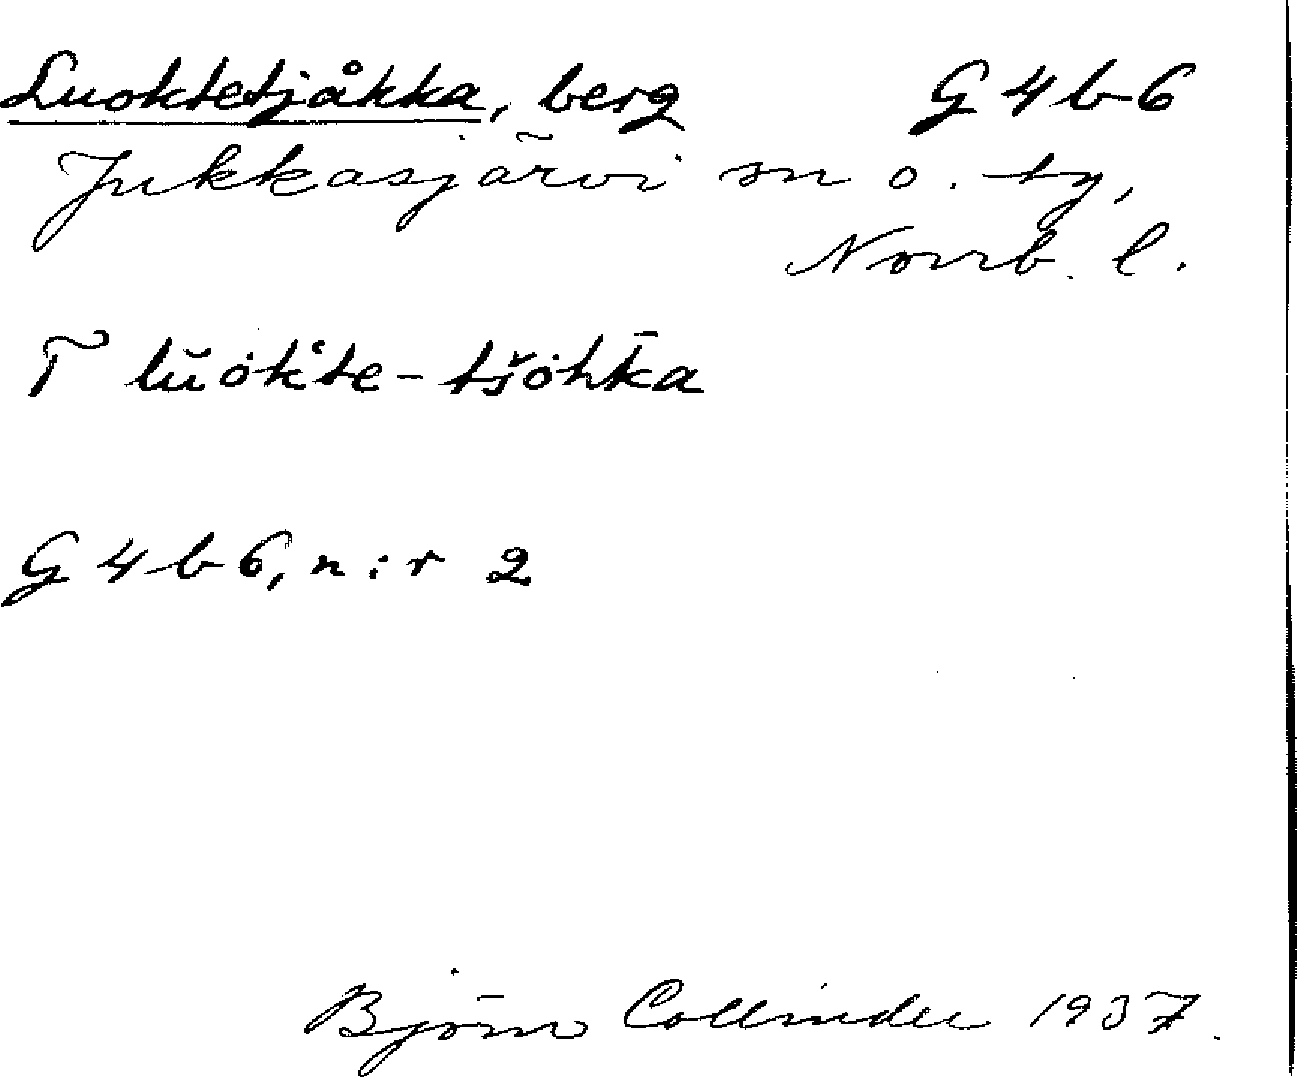 Luoktetjåkka, berg G4b6
Jukkasjärvi sn o. tg,
Norrb. l.
T lŭȯk̔te-tšȯhk̄a
G4b6, n:r 2
Björn Collinder 1937.